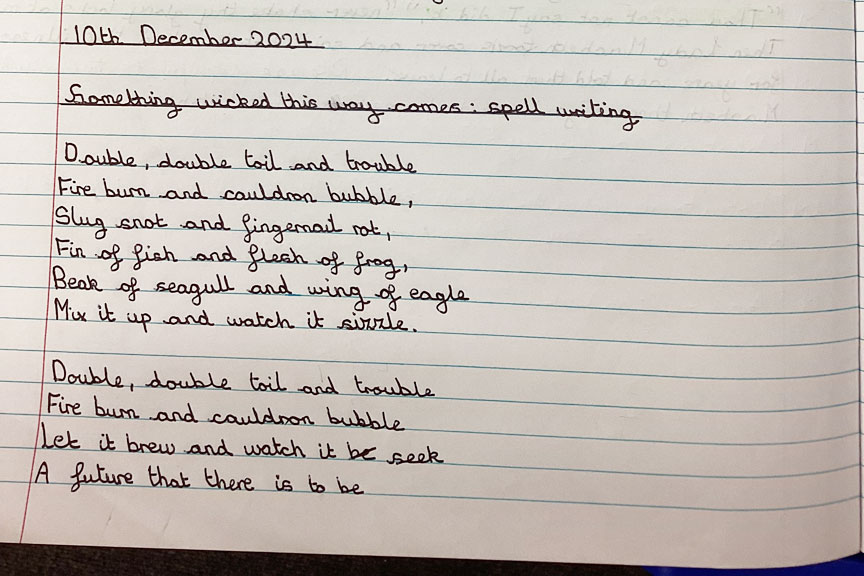 10th December 2024
Something wicked this way comes: spell writing
Double, double toil and trouble
Fire burn and cauldron bubble,
Slug snot and fingernail rot,
Fin of fish and flesh of frog,
Beak of seagull and wing of eagle
Mix it up and watch it sizzle.
Double, double toil and trouble
Fire burn and cauldron bubble
Let it brew and watch it be seek
A future that there is to be